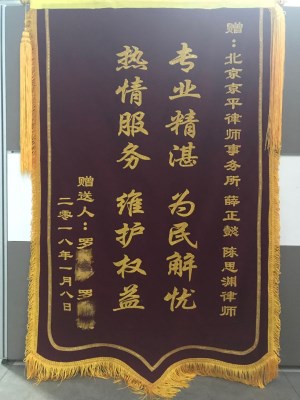 赠：北京京平律师事务所 薛正懿 陈思渊律师
专业精湛 为民解忧
热情服务 维护权益
赠送人：罗 罗
二零一八年一月八日